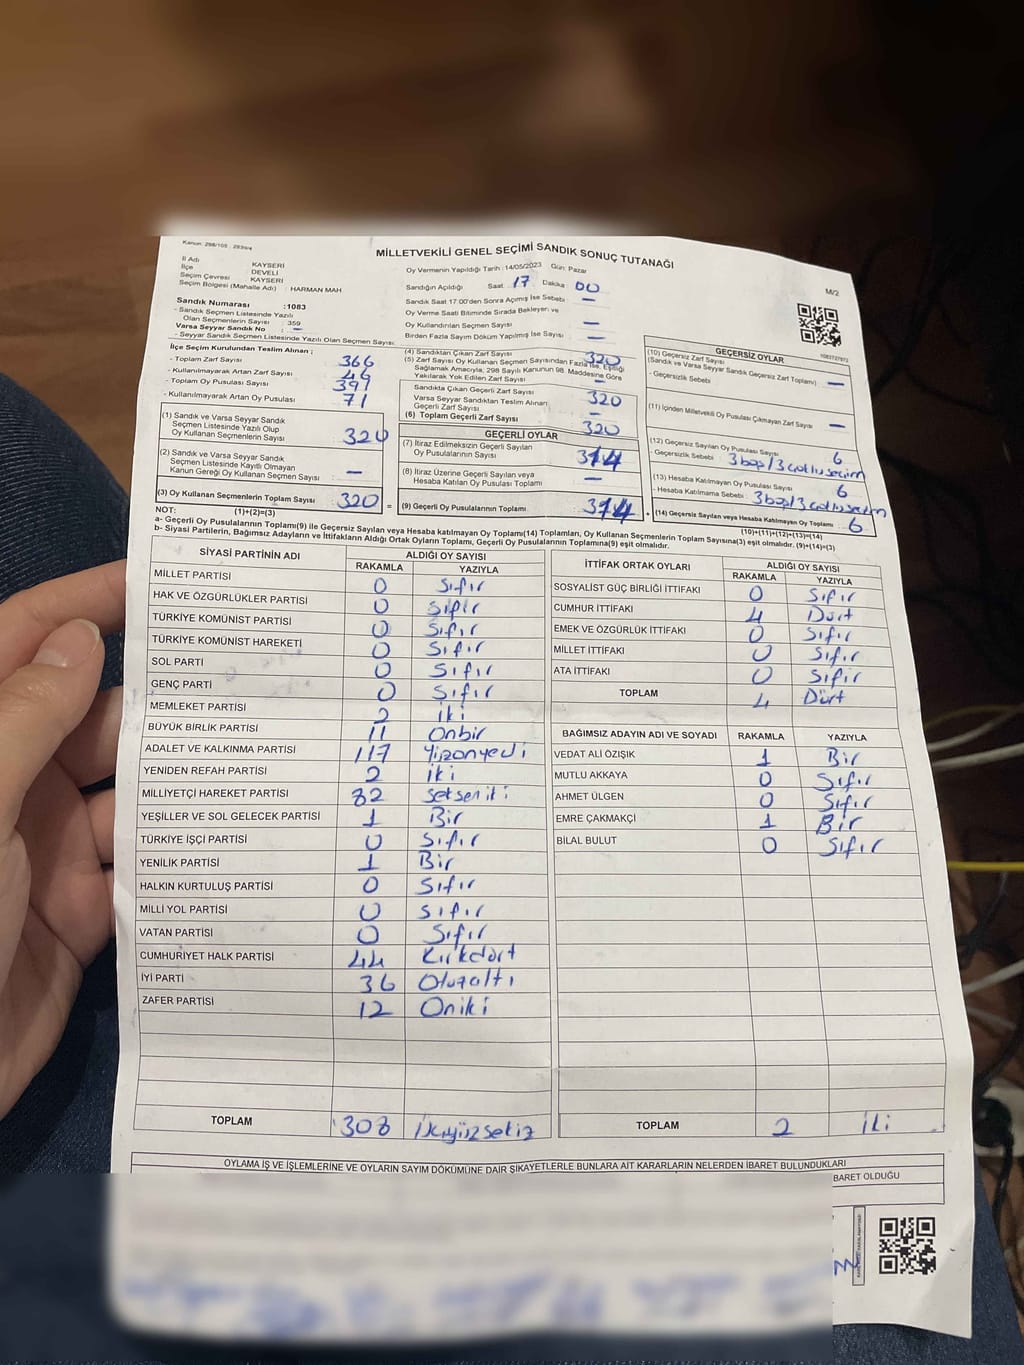 Kanun: 298/105
MİLLETVEKİLİ GENEL SEÇİMİ SANDIK SONUÇ TUTANAĞI
M/2
İl Adı KAYSERİ
İlçe DEVELİ
Seçim Çevresi KAYSERİ
Seçim Bölgesi (Mahalle Adı) : HARMAN MAH
Oy Vermenin Yapıldığı Tarih : 14/05/2023 Gün: Pazar
Sandığın Açıldığı Saat 17 Dakika 00
Sandık Saat 17.00'den Sonra Açımış İse Sebebi —
Oy Verme Saati Bitiminde Sırada Bekleyen ve
Oy Kullandırılan Seçmen Sayısı —
Birden Fazla Sayım Döküm Yapılmış İse Sayısı —
Sandık Numarası :1083
- Sandık Seçmen Listesinde Yazılı
Olan Seçmenlerin Sayısı : 359
Varsa Seyyar Sandık No : —
- Seyyar Sandık Seçmen Listesinde Yazılı Olan Seçmen Sayısı:
İlçe Seçim Kurulundan Teslim Alınan ;
- Toplam Zarf Sayısı 366
- Kullanılmayarak Artan Zarf Sayısı 46
- Toplam Oy Pusulası Sayısı 391
- Kullanılmayarak Artan Oy Pusulası 71
(1) Sandık ve Varsa Seyyar Sandık
Seçmen Listesinde Yazılı Olup
Oy Kullanan Seçmenlerin Sayısı 320
(2) Sandık ve Varsa Seyyar Sandık
Seçmen Listesinde Kayıtlı Olmayan
Kanun Gereği Oy Kullanan Seçmen Sayısı —
(3) Oy Kullanan Seçmenlerin Toplam Sayısı 320
(4) Sandıktan Çıkan Zarf Sayısı 320
(5) Zarf Sayısı Oy Kullanan Seçmen Sayısından Fazla İse, Eşitliği
Sağlamak Amacıyla; 298 Sayılı Kanunun 98. Maddesine Göre
Yakılarak Yok Edilen Zarf Sayısı —
Sandıkta Çıkan Geçerli Zarf Sayısı 320
Varsa Seyyar Sandıktan Teslim Alınan
Geçerli Zarf Sayısı —
(6) Toplam Geçerli Zarf Sayısı 320
GEÇERLİ OYLAR
(7) İtiraz Edilmeksizin Geçerli Sayılan
Oy Pusulalarının Sayısı 314
(8) İtiraz Üzerine Geçerli Sayılan veya
Hesaba Katılan Oy Pusulası Toplamı —
= (9) Geçerli Oy Pusulalarının Toplamı 314
GEÇERSİZ OYLAR
(10) Geçersiz Zarf Sayısı
(Sandık ve Varsa Seyyar Sandık Geçersiz Zarf Toplamı) —
- Geçersizlik Sebebi
(11) İçinden Milletvekili Oy Pusulası Çıkmayan Zarf Sayısı —
(12) Geçersiz Sayılan Oy Pusulası Sayısı 6
- Geçersizlik Sebebi 3 boş/3 çoklu seçim
(13) Hesaba Katılmayan Oy Pusulası Sayısı 6
- Hesaba Katılmama Sebebi 3 boş/3 çoklu seçim
+ (14) Geçersiz Sayılan veya Hesaba Katılmayan Oy Toplamı : 6
NOT: (1)+(2)=(3)
(10)+(11)+(12)+(13)=(14)
a- Geçerli Oy Pusulalarının Toplamı(9) ile Geçersiz Sayılan veya Hesaba katılmayan Oy Toplamı(14) Toplamları, Oy Kullanan Seçmenlerin Toplam Sayısına(3) eşit olmalıdır. (9)+(14)=(3)
b- Siyasi Partilerin, Bağımsız Adayların ve İttifakların Aldığı Ortak Oyların Toplamı, Geçerli Oy Pusulalarının Toplamına(9) eşit olmalıdır.
SİYASİ PARTİNİN ADI ALDIĞI OY SAYISI
RAKAMLA YAZIYLA
MİLLET PARTİSİ 0 Sıfır
HAK VE ÖZGÜRLÜKLER PARTİSİ 0 Sıfır
TÜRKİYE KOMÜNİST PARTİSİ 0 Sıfır
TÜRKİYE KOMÜNİST HAREKETİ 0 Sıfır
SOL PARTİ 0 Sıfır
GENÇ PARTİ 0 Sıfır
MEMLEKET PARTİSİ 2 iki
BÜYÜK BİRLİK PARTİSİ 11 Onbir
ADALET VE KALKINMA PARTİSİ 117 Yüzonyedi
YENİDEN REFAH PARTİSİ 2 iki
MİLLİYETÇİ HAREKET PARTİSİ 82 Seksen iki
YEŞİLLER VE SOL GELECEK PARTİSİ 1 Bir
TÜRKİYE İŞÇİ PARTİSİ 0 Sıfır
YENİLİK PARTİSİ 1 Bir
HALKIN KURTULUŞ PARTİSİ 0 Sıfır
MİLLİ YOL PARTİSİ 0 Sıfır
VATAN PARTİSİ 0 Sıfır
CUMHURİYET HALK PARTİSİ 44 Kırkdört
İYİ PARTİ 36 Otuzaltı
ZAFER PARTİSİ 12 Oniki
TOPLAM 308
İTTİFAK ORTAK OYLARI ALDIĞI OY SAYISI
RAKAMLA YAZIYLA
SOSYALİST GÜÇ BİRLİĞİ İTTİFAKI 0 Sıfır
CUMHUR İTTİFAKI 4 Dört
EMEK VE ÖZGÜRLÜK İTTİFAKI 0 Sıfır
MİLLET İTTİFAKI 0 Sıfır
ATA İTTİFAKI 0 Sıfır
TOPLAM 4 Dört
BAĞIMSIZ ADAYIN ADI VE SOYADI RAKAMLA YAZIYLA
VEDAT ALİ ÖZIŞIK 1 Bir
MUTLU AKKAYA 0 Sıfır
AHMET ÜLGEN 0 Sıfır
EMRE ÇAKMAKÇİ 1 Bir
BİLAL BULUT 0 Sıfır
TOPLAM 2 iki
OYLAMA İŞ VE İŞLEMLERİNE VE OYLARIN SAYIM DÖKÜMÜNE DAİR ŞİKAYETLERLE BUNLARA AİT KARARLARIN NELERDEN İBARET BULUNDUKLARI
BARET OLDUĞU